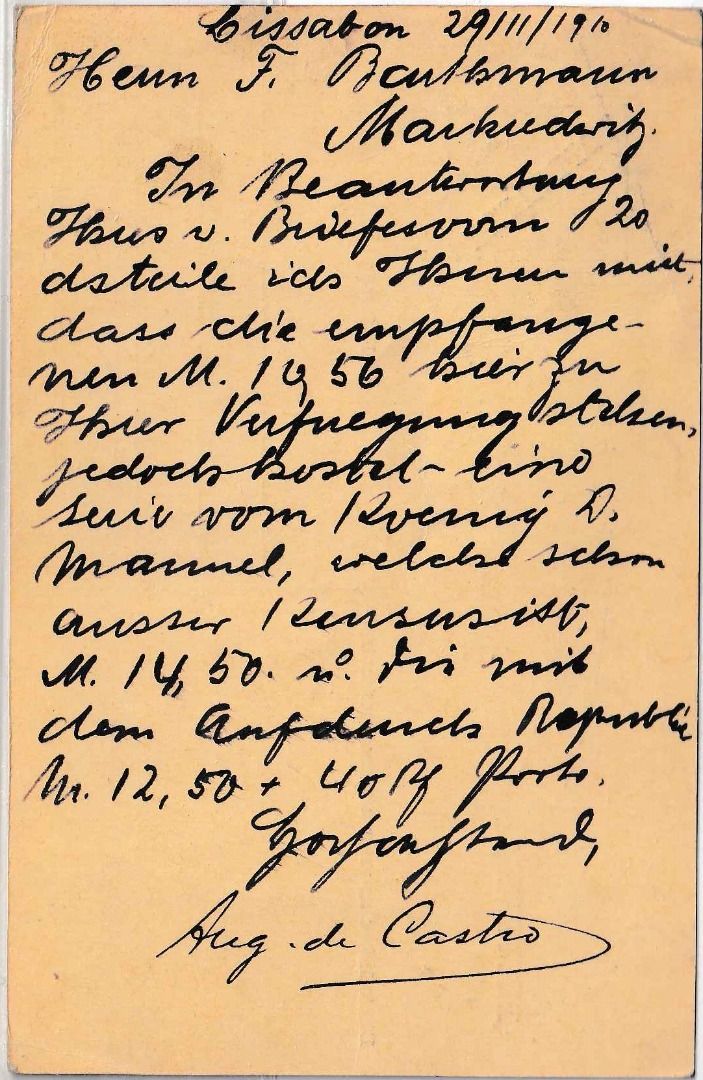 Lissabon 29/11/1910
Herrn F. Barthmann
Markredwitz.
In Beantwortung
Ihres v. Briefes vom 20
ds teile ich Ihnen mit,
dass die empfange-
nen M. 10,56 hier zu
Ihrer Verfuegung stehen,
jedoch kostet eine
Serie vom Koenig D.
Manuel, welche schon
ausser Kursus ist,
M. 14,50. u. die mit
dem Aufdruck Republik
M. 12,50 + 40 Pf Porto.
Hochachtend,
Aug. de Castro